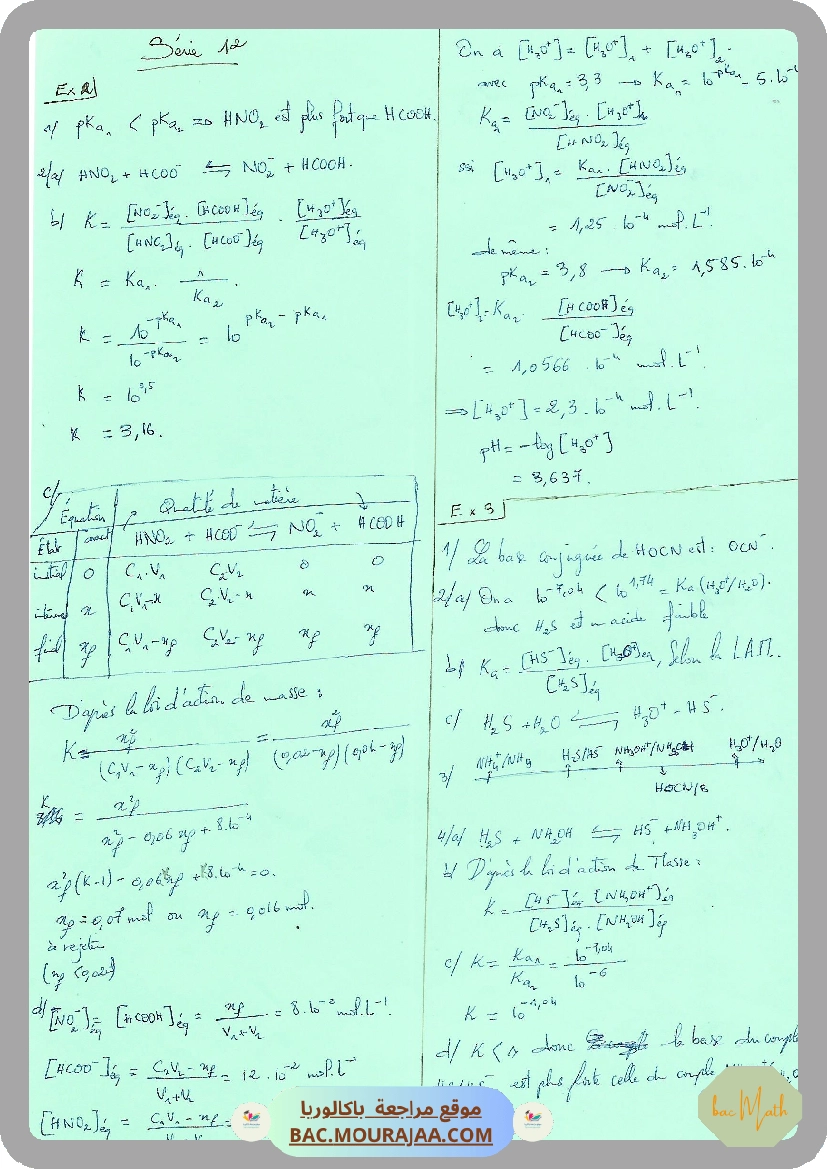 Série 12
Ex 2
1/ pKa₁ < pKa₂ ⇒ HNO₂ est plus fort que HCOOH.
2/a/ HNO₂ + HCOO⁻ ⇌ NO₂⁻ + HCOOH.
b/ K = [NO₂⁻]éq . [HCOOH]éq / [HNO₂]éq . [HCOO⁻]éq . [H₃O⁺]éq / [H₃O⁺]éq
K = Ka₁ . 1 / Ka₂ .
K = 10^-pKa₁ / 10^-pKa₂ = 10^pKa₂ - pKa₁
K = 10^0,5
K = 3,16.
c/
Équation Quantité de matière
État HNO₂ + HCOO⁻ ⇌ NO₂⁻ + HCOOH
initial 0 C₁.V₁ C₂V₂ 0 0
x C₁V₁-x C₂V₂-x x x
final xf C₁V₁-xf C₂V₂-xf xf xf
D'après la loi d'action de masse :
K = x²f / (C₁V₁-xf)(C₂V₂-xf) = x²f / (0,02-xf)(0,04-xf)
K = x²f / x²f - 0,06xf + 8.10⁻⁴
x²f(K-1) - 0,06 xf + 8.10⁻⁴ = 0.
xf = 0,07 mol ou xf = 0,016 mol.
à rejeter
(xf < 0,02)
d/ [NO₂⁻]éq = [HCOOH]éq = xf / V₁+V₂ = 8.10⁻² mol.L⁻¹.
[HCOO⁻]éq = C₂V₂ - xf / V₁+V₂ = 12.10⁻² mol.L⁻¹
[HNO₂]éq = C₁V₁ - xf
On a [H₃O⁺] = [H₃O⁺]₁ + [H₃O⁺]₂.
avec pKa₁ = 3,3 → Ka₁ = 10^-pKa₁ = 5.10⁻⁴
Ka₁ = [NO₂⁻]éq . [H₃O⁺]₁ / [HNO₂]éq
ssi [H₃O⁺]₁ = Ka₁ . [HNO₂]éq / [NO₂⁻]éq
= 1,25 . 10⁻⁴ mol.L⁻¹.
de même :
pKa₂ = 3,8 → Ka₂ = 1,585.10⁻⁴
[H₃O⁺]₂ = Ka₂ . [HCOOH]éq / [HCOO⁻]éq
= 1,0566 . 10⁻⁴ mol.L⁻¹.
⇒ [H₃O⁺] = 2,3 . 10⁻⁴ mol.L⁻¹.
pH = -log [H₃O⁺]
= 3,637.
Ex 3
1/ La base conjuguée de HOCN est : OCN⁻.
2/a/ On a 10^-7,04 < 10^1,74 = Ka(H₃O⁺/H₂O).
donc H₂S est un acide faible
b/ Ka = [HS⁻]éq . [H₃O⁺]éq / [H₂S]éq , Selon la LAM.
c/ H₂S + H₂O ⇌ H₃O⁺ + HS⁻.
3/ NH₄⁺/NH₃ H₂S/HS⁻ NH₃OH⁺/NH₂OH H₃O⁺/H₂O
4/a/ H₂S + NH₂OH ⇌ HS⁻ + NH₃OH⁺.
b/ D'après la loi d'action de Masse :
K = [HS⁻]éq . [NH₃OH⁺]éq / [H₂S]éq . [NH₂OH]éq
c/ K = Ka₁ / Ka₂ = 10^-7,04 / 10^-6
K = 10^-1,04
d/ K < 1 donc la base du couple
est plus forte celle du couple
موقع مراجعة باكالوريا
BAC.MOURAJAA.COM
bacMath